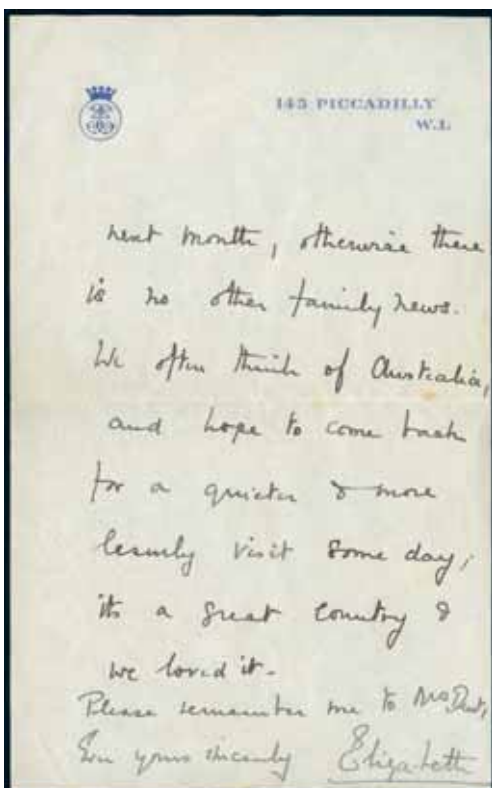 145 PICCADILLY
W.1.
next month, otherwise there
is no other family news.
We often think of Australia,
and hope to come back
for a quieter & more
leisurely visit some day,
its a great country &
we loved it.
Please remember me to Mrs
Ever yours sincerely Elizabeth